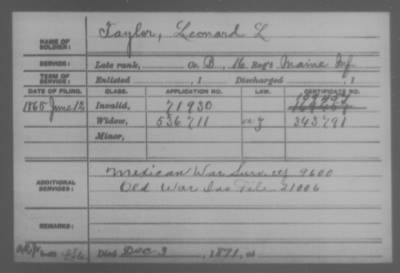 NAME OF SOLDIER: Taylor, Leonard L
SERVICE: Late rank, Co. B, 16 Reg't Maine Inf
TERM OF SERVICE: Enlisted , 1 Discharged , 1
DATE OF FILING. CLASS. APPLICATION NO. LAW. CERTIFICATE NO.
1865 June 12 Invalid, 71930
Widow, 536711 343791
Minor,
ADDITIONAL SERVICES: Mexican War Surv cf 9600
Old War Inv File 21006
REMARKS:
Died Dec 3, 1891, at